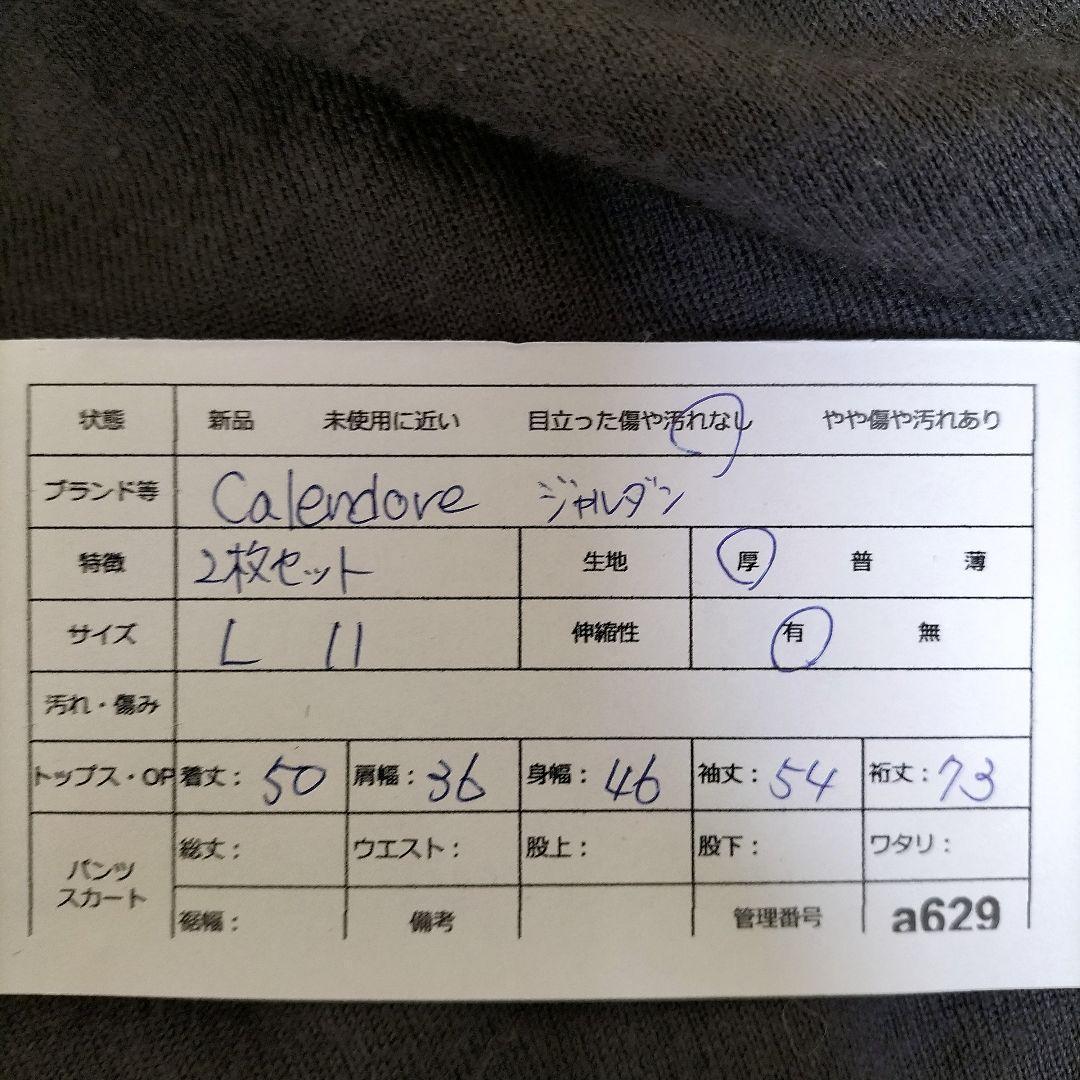 状態 新品 未使用に近い 目立った傷や汚れなし やや傷や汚れあり
ブランド等 Calendore ジャルダン
特徴 2枚セット 生地 厚 普 薄
サイズ L 11 伸縮性 有 無
汚れ・傷み
トップス・OP 着丈: 50 肩幅: 36 身幅: 46 袖丈: 54 裄丈: 73
パンツ スカート 総丈: ウエスト: 股上: 股下: ワタリ:
裾幅: 備考 管理番号 a629